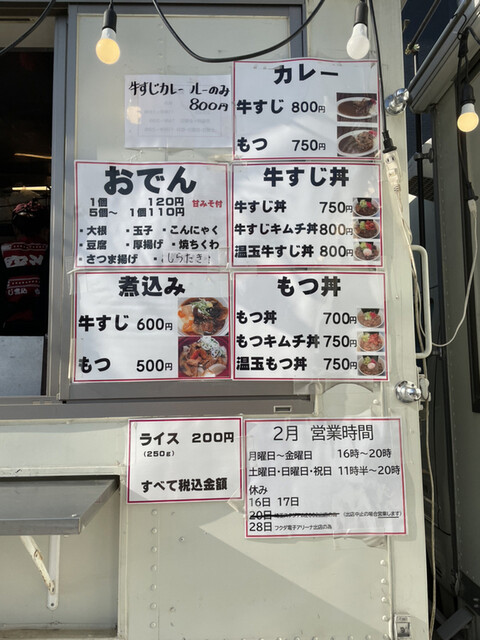 牛すじカレー ルーのみ
800円
カレー
牛すじ 800円
もつ 750円
おでん
1個 120円 甘みそ付
5個～ 1個110円
・大根 ・玉子 ・こんにゃく
・豆腐 ・厚揚げ ・焼ちくわ
・さつま揚げ ・しらたき
牛すじ丼
牛すじ丼 750円
牛すじキムチ丼 800円
温玉牛すじ丼 800円
煮込み
牛すじ 600円
もつ 500円
もつ丼
もつ丼 700円
もつキムチ丼 750円
温玉もつ丼 750円
ライス 200円
(250g)
すべて税込金額
2月 営業時間
月曜日～金曜日 16時～20時
土曜日・日曜日・祝日 11時半～20時
休み
16日 17日
20日 (出店中止の場合営業します)
28日 フクダ電子アリーナ出店の為